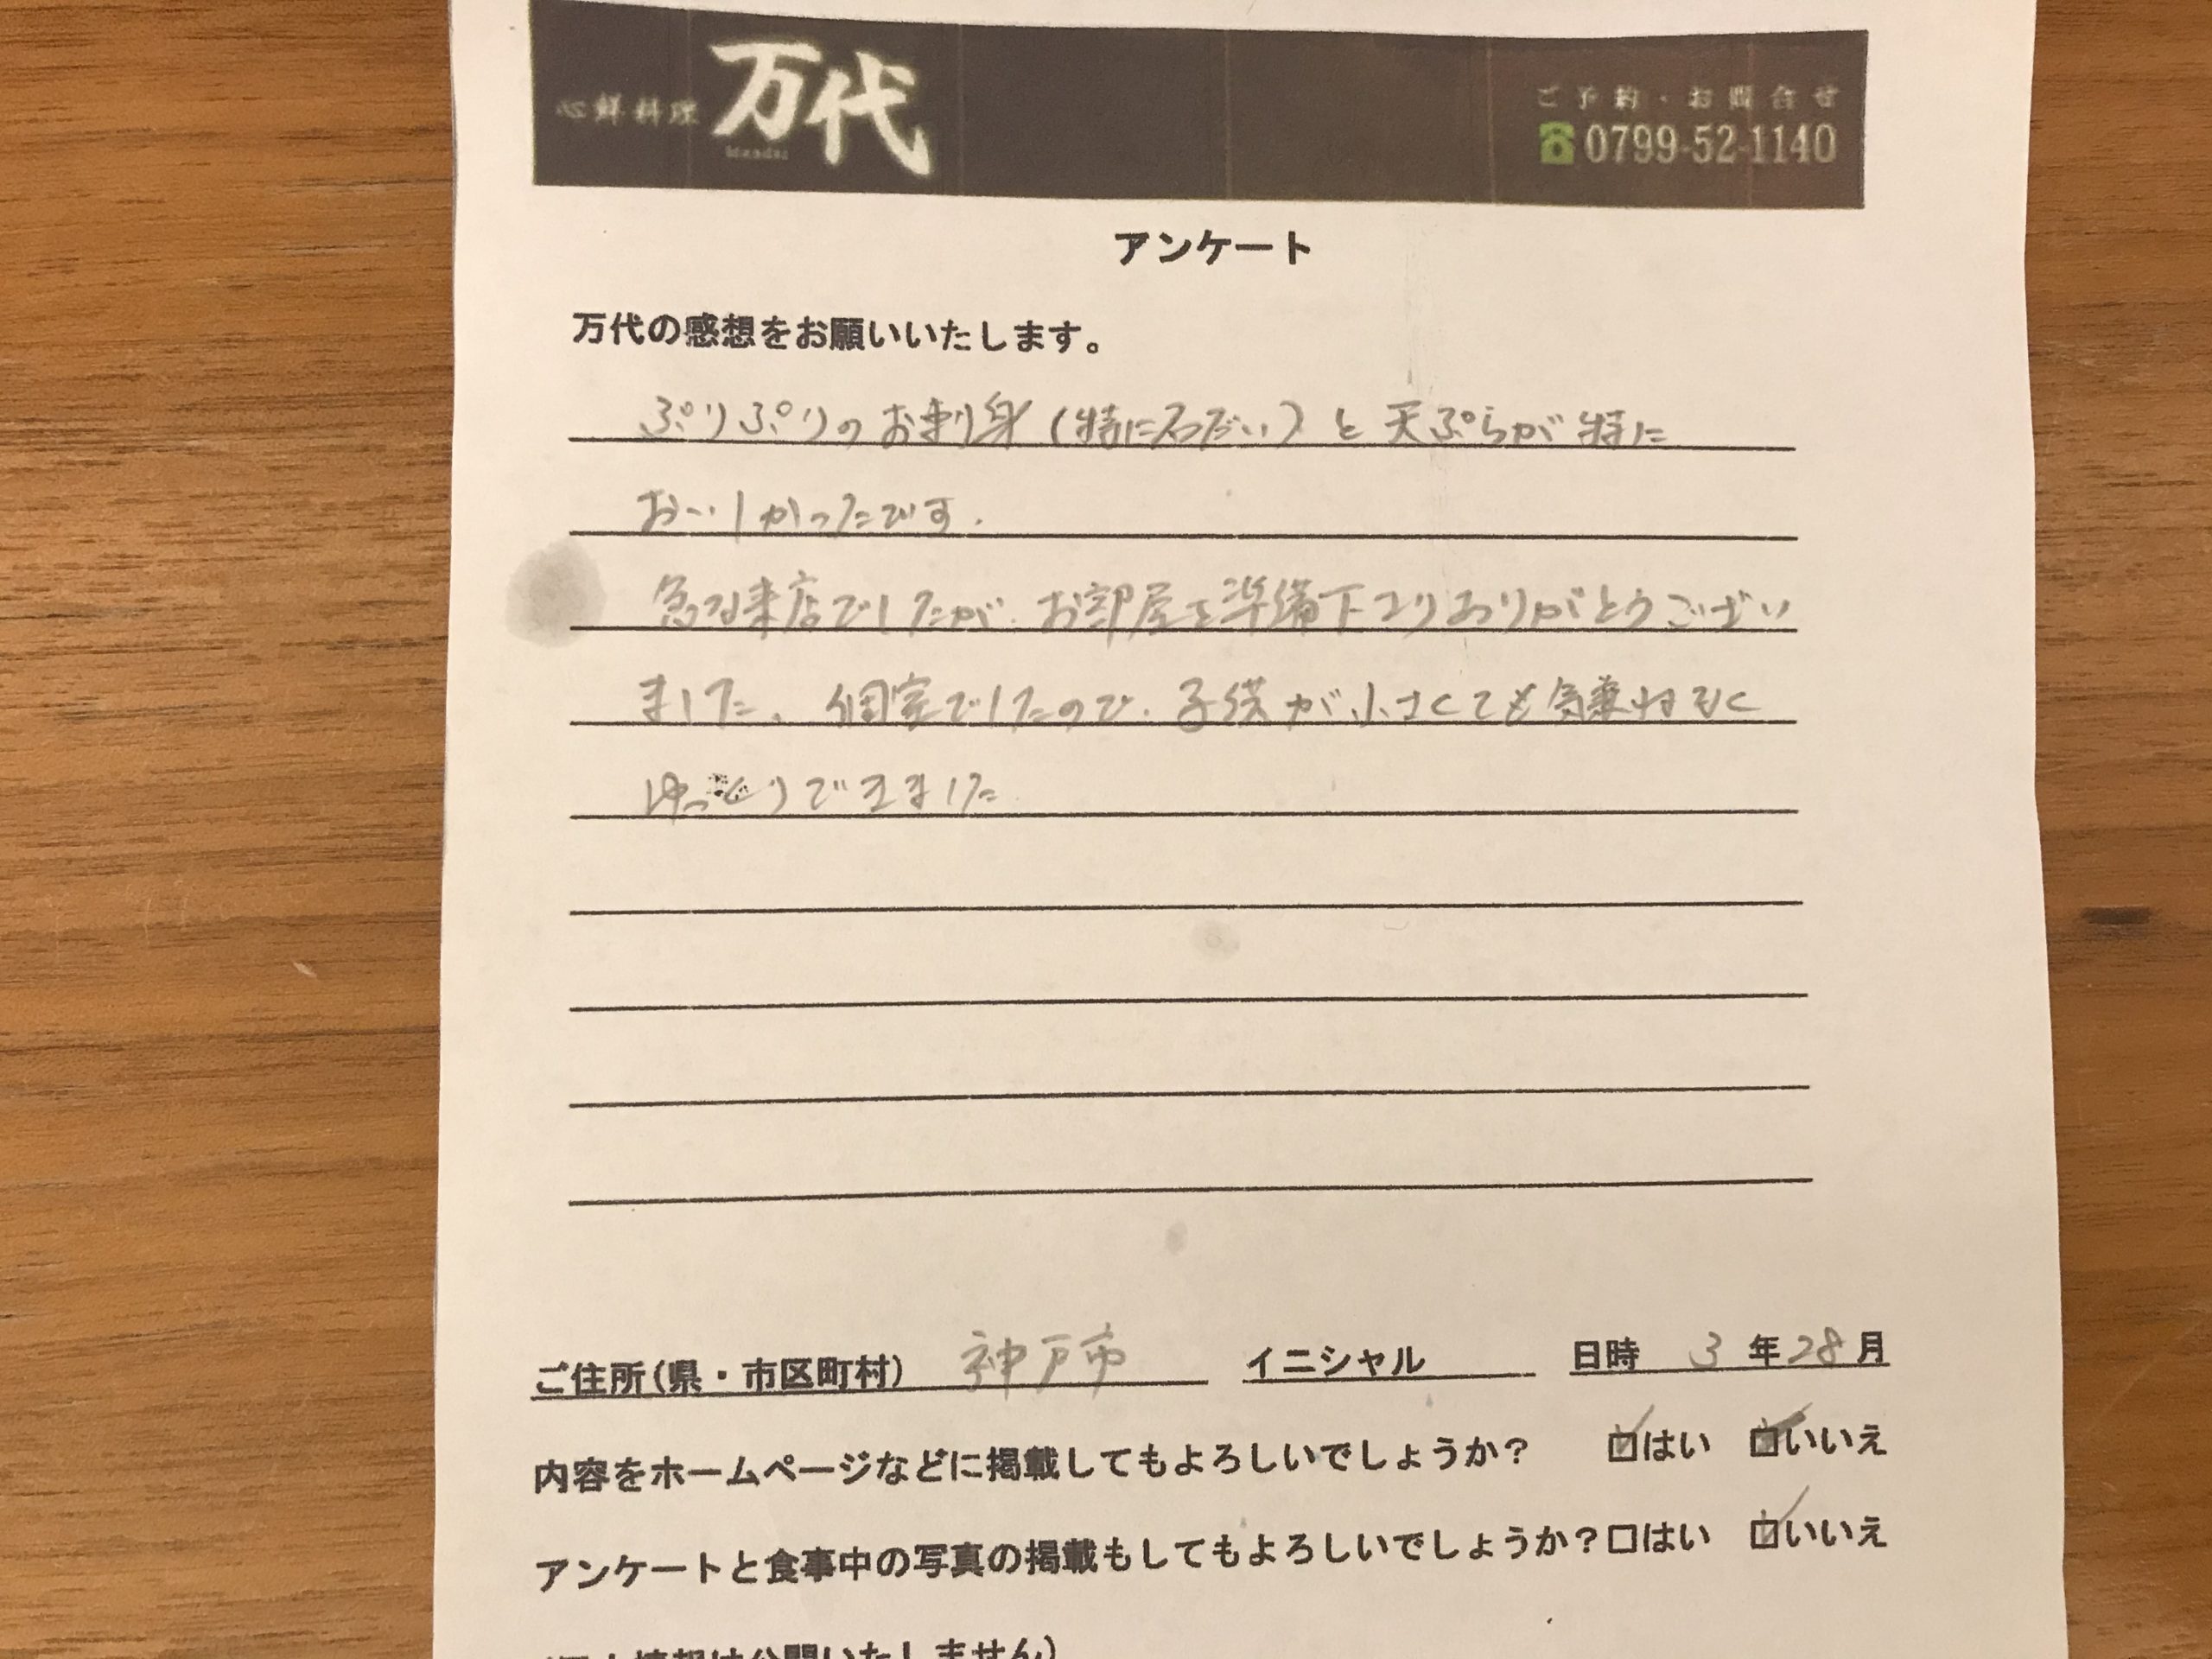 心鮮料理 万代
ご予約・お問合せ
0799-52-1140
アンケート
万代の感想をお願いいたします。
ぷりぷりのお刺身(特に石だい)と天ぷらが特に
おいしかったです.
急な来店でしたが、お部屋を準備下さりありがとうござい
ました、個室でしたので、子供が小さくても気兼ねなく
ゆっくりできました
ご住所(県・市区町村) 神戸市 イニシャル 日時 3年28月
内容をホームページなどに掲載してもよろしいでしょうか? ☑はい ☑いいえ
アンケートと食事中の写真の掲載もしてもよろしいでしょうか?□はい ☑いいえ